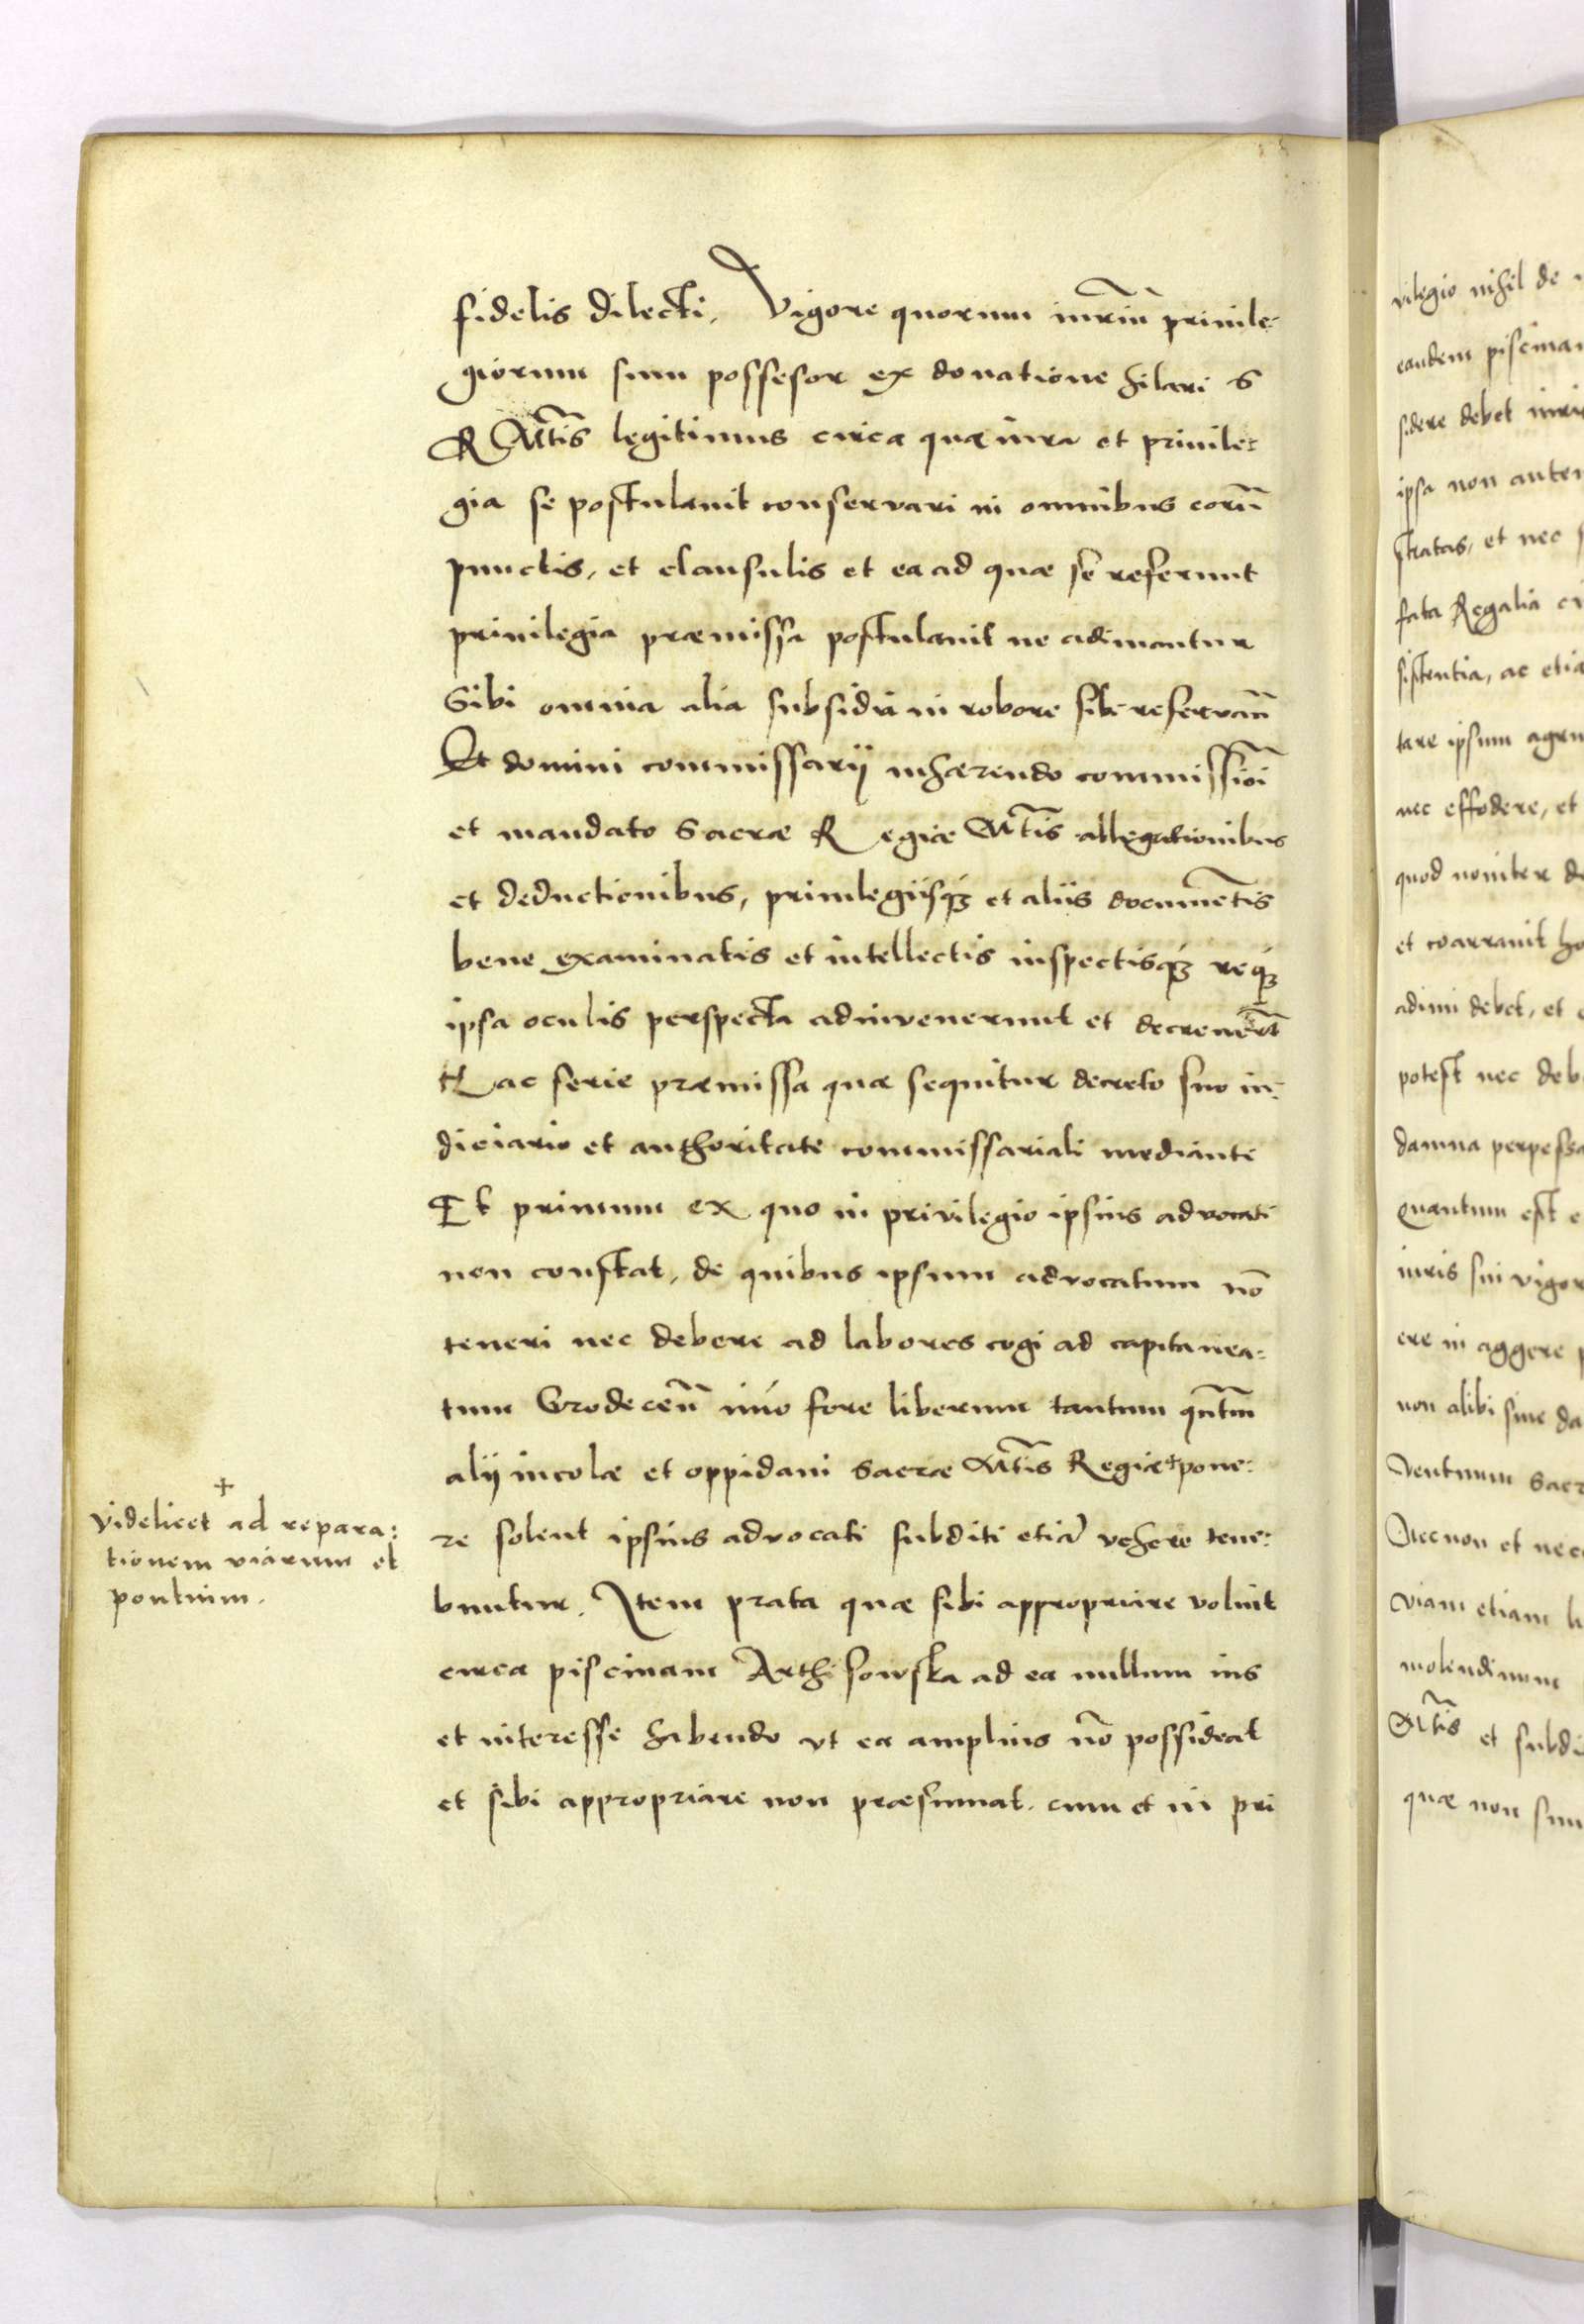 fidelis dilecti, Vigore quorum iuriũ priuile-
giorum sum possesor ex donatione hilari S
R Mtis legitimus circa quæ iura et priuile-
gia se postulauit conservari in omnibus eorũ
punctis, et clausulis et ea ad quæ se referunt
priuilegia præmissa postulauit ne adimantur
Sibi omnia alia subsidia in robore sibi reservañ
Et domini commissarij inhærendo commissiõi
et mandato Sacræ Regiæ Mtis allegationibus
et deductionibus, priuilegiisq3 et aliis documẽtis
bene examinatis et intellectis inspectisq3 req3
ipsa oculis perspecta adinvenerunt et decreuerũt
Hac serie præmissa quæ sequitur decreto suo iu-
diciario et authoritate commissariali mediante
Et primum ex quo in privilegio ipsius advocati
non constat, de quibus ipsum advocatum nõ
teneri nec debere ad labores cogi ad capitanea-
tum Grodeceñ imo fore liberum tantum qñtm
alij incolæ et oppidani Sacræ Mtis Regiæ + pone-
re solent ipsius advocati subditi etiã vehere tene-
buntur. Item prata quæ sibi appropriare voluit
circa piscinam Arthisowska ad ea nullum ius
et interesse habendo vt ea amplius nõ possideat
et sibi appropriare non præsumat. cum et in pri
+
Videlicet ad repara:
tionem viarum et
pontium.
vilegio nihil de
eandem piscinam
sidere debet
ipsa non autem
stratas, et nec
fata Regalia
sistentia, ac etia
tare ipsum
nec effodere, et
quod nouiter
et coarrauit
adimi debet, et
potest nec deb
damna perpessa
quantum est
iuris sui vigor
ere in aggere
non alibi sine da
Ventuum Sacr
Nec non et nec
viam etiam
molendinum
Mtis et subdi
quæ non